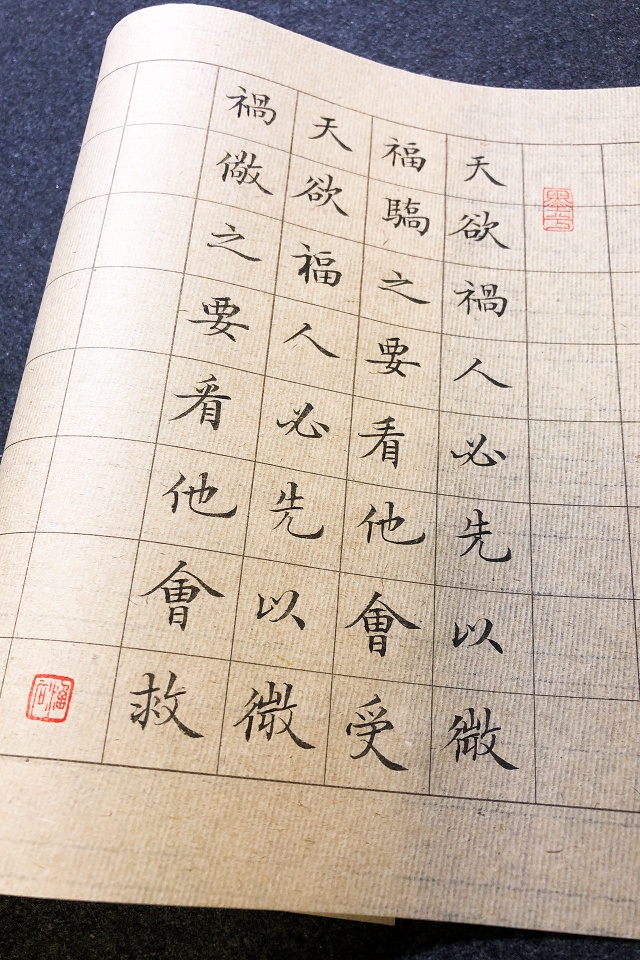 天欲禍人必先以微
福驕之要看他會受
天欲福人必先以微
禍儆之要看他會救